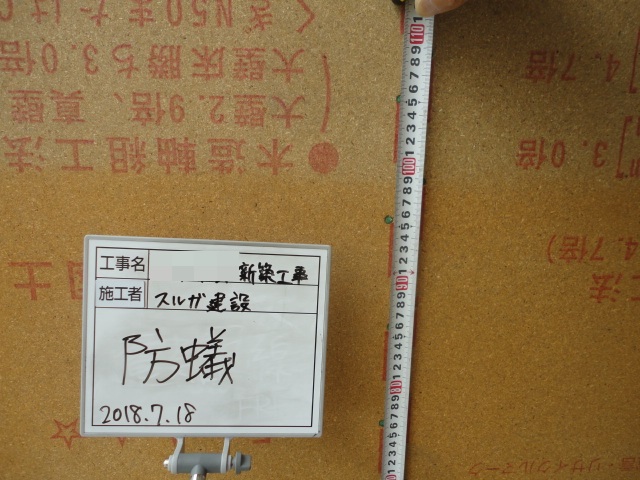 くぎN50また
大壁床勝ち3.0倍
大壁2.9倍、真壁
●木造軸組工法
4.7倍
3.0倍
4.7倍)
工事名 新築工事
施工者 スルガ建設
防蟻
2018.7.18
法
土
☆
・リサイクルマーク
110
9
8
7
6
5
4
3
2
1
100
9
8
7
6
5
4
3
2
1
90
9
8
7
6
5
4
3
2
1
80
9
8
7
6
5
4
3
2
1